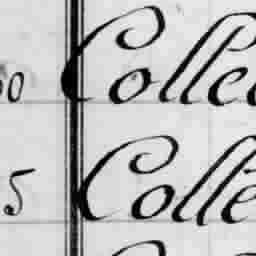 0 Collec
5 Colle